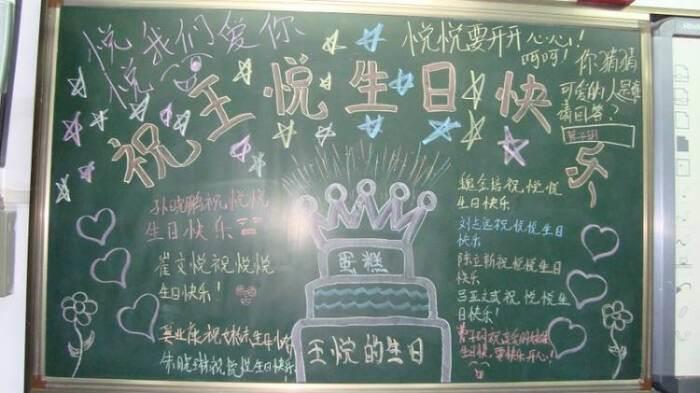 悦我们爱你
悦
悦悦要开开心心!
呵呵!
你猜猜
可爱的人是谁
请回答?
祝王悦生日快乐
孙晓鹏祝悦悦
生日快乐
崔文悦祝悦悦
生日快乐!
祝妹妹生日快乐
朱晓琳祝悦悦生日快乐
蛋糕
王悦的生日
魏金培祝悦悦
生日快乐
刘志远祝悦悦生日
快乐
陈立新祝悦悦生日
快乐
祝悦悦生
日快乐!
生日快乐,要快乐开心!